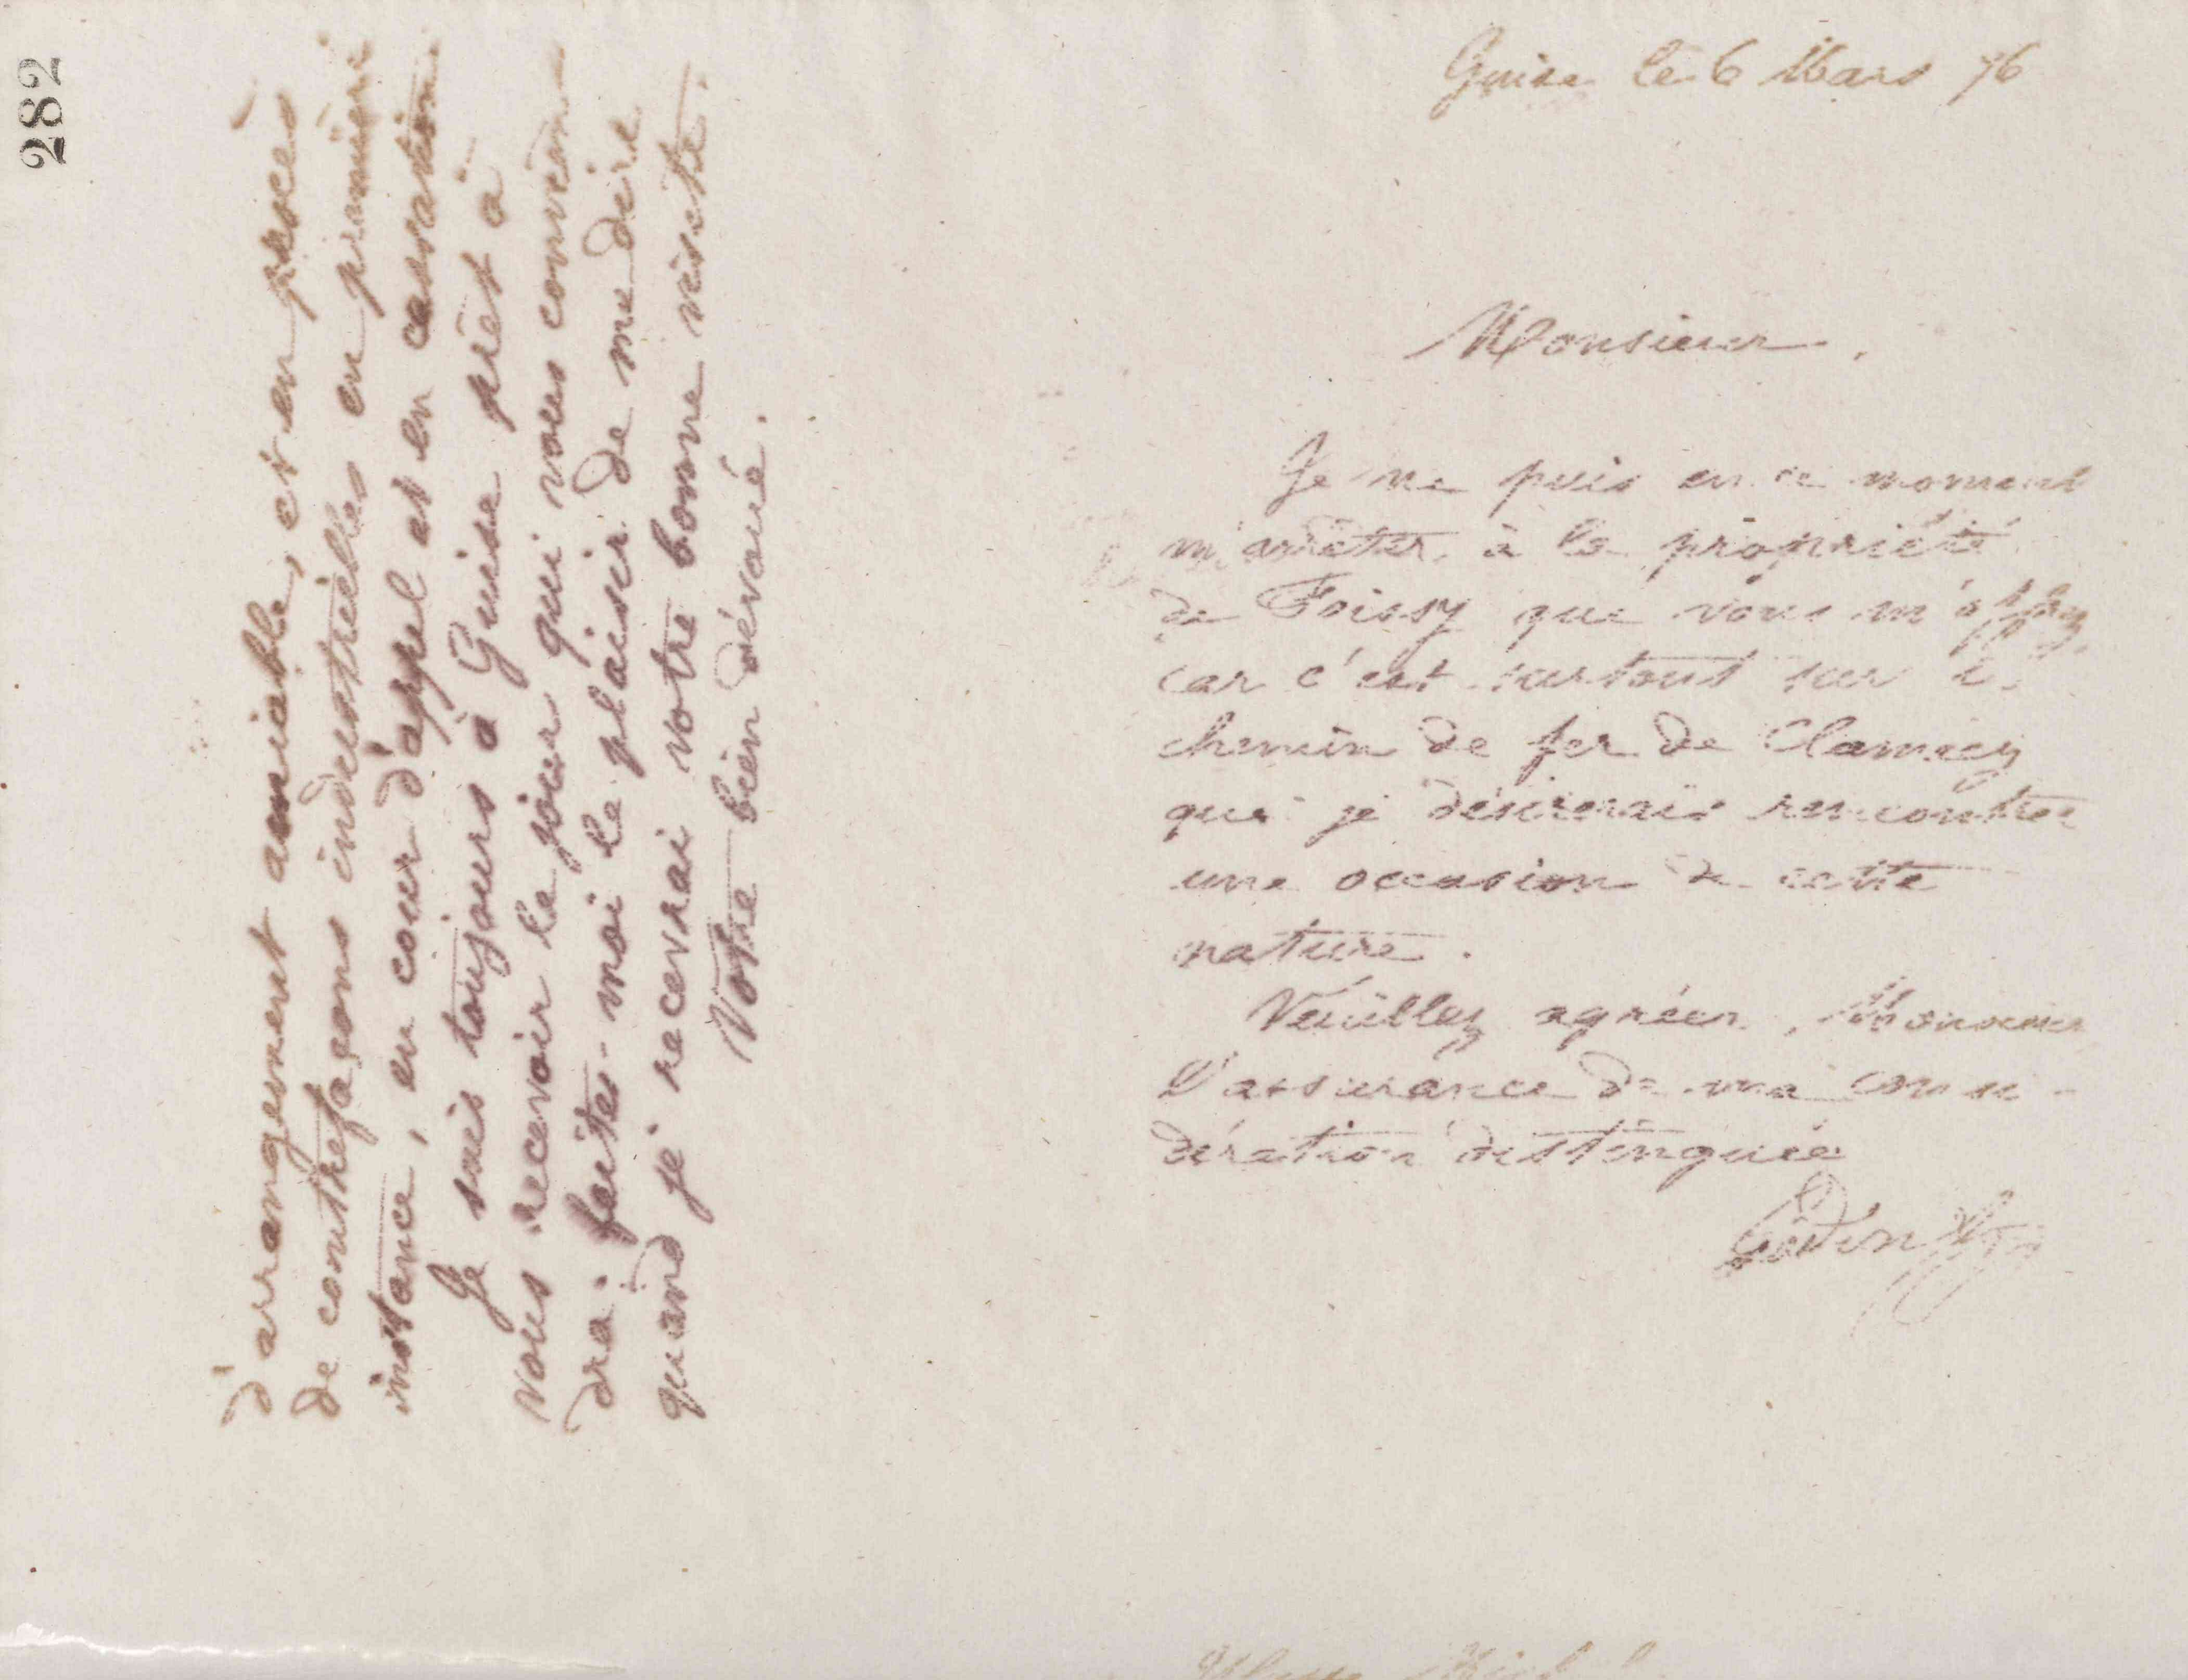 282
d'arrangement amiable, et en procès
de contrefaçons industrielles en première
instance, en cour d'appel et en cassation
Je suis toujours à Guise prêt à
vous recevoir le jour qui vous convien-
dra. faites-moi le plaisir de me dire
quand je recevrai votre bonne visite.
Votre bien dévoué.
Guise le 6 Mars 76
Monsieur.
Je ne puis en ce moment
m'arrêter, à la propriété
de Foissy que vous m'offrez,
car c'est surtout sur le
chemin de fer de Clamecy
que je désirerais rencontrer
une occasion de cette
nature.
Veuillez agréer, Monsieur
l'assurance de ma consi-
dération distinguée
Godin